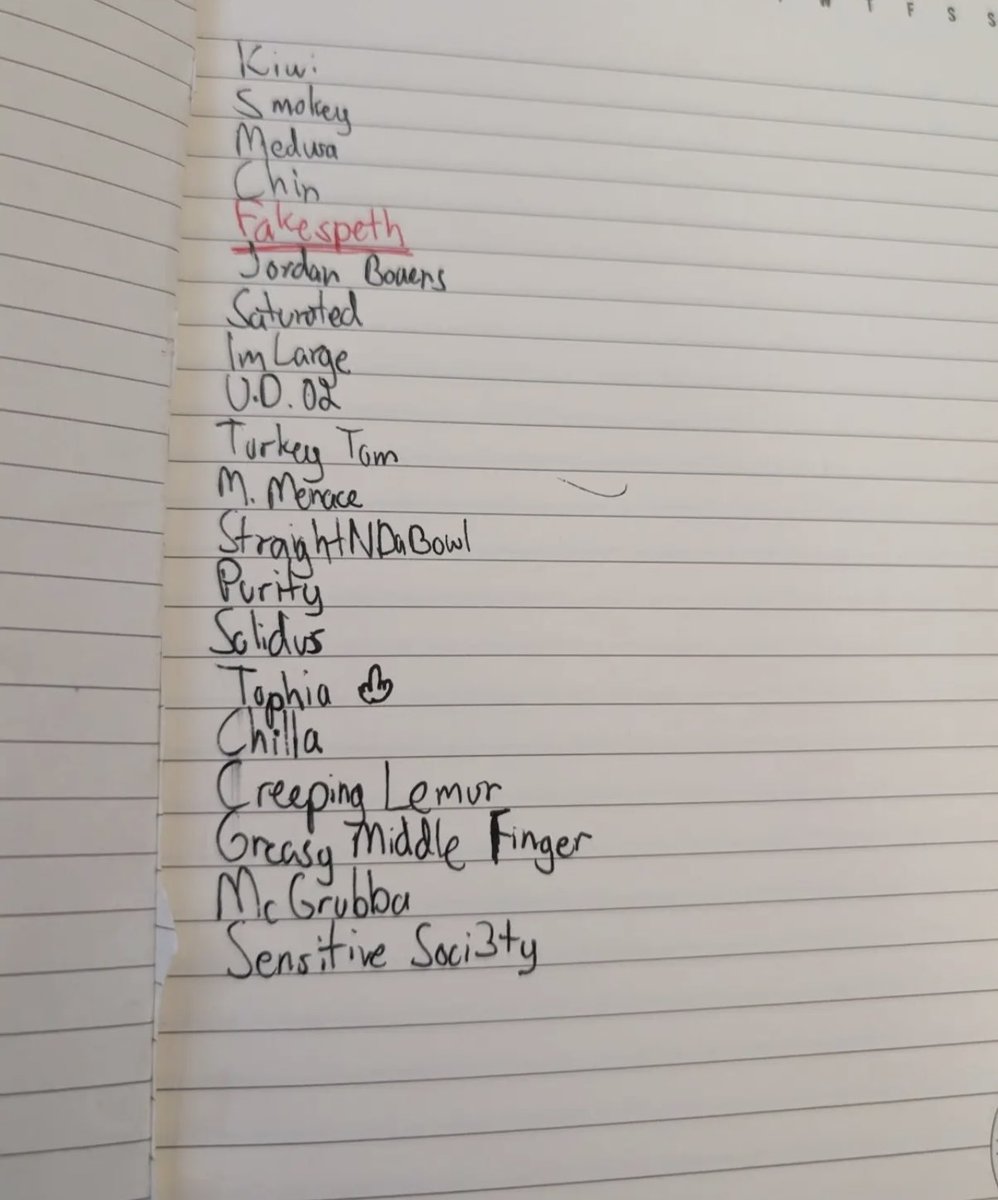 W T F S S
Kiwi
Smokey
Medusa
Chin
Fakespeth
Jordan Bowers
Saturated
Im Large
U.D. 02
Turkey Tom
M. Menace
StraightNDaBowl
Purity
Solidus
Tophia
Chilla
Creeping Lemur
Greasy Middle Finger
McGrubba
Sensitive Soci3ty